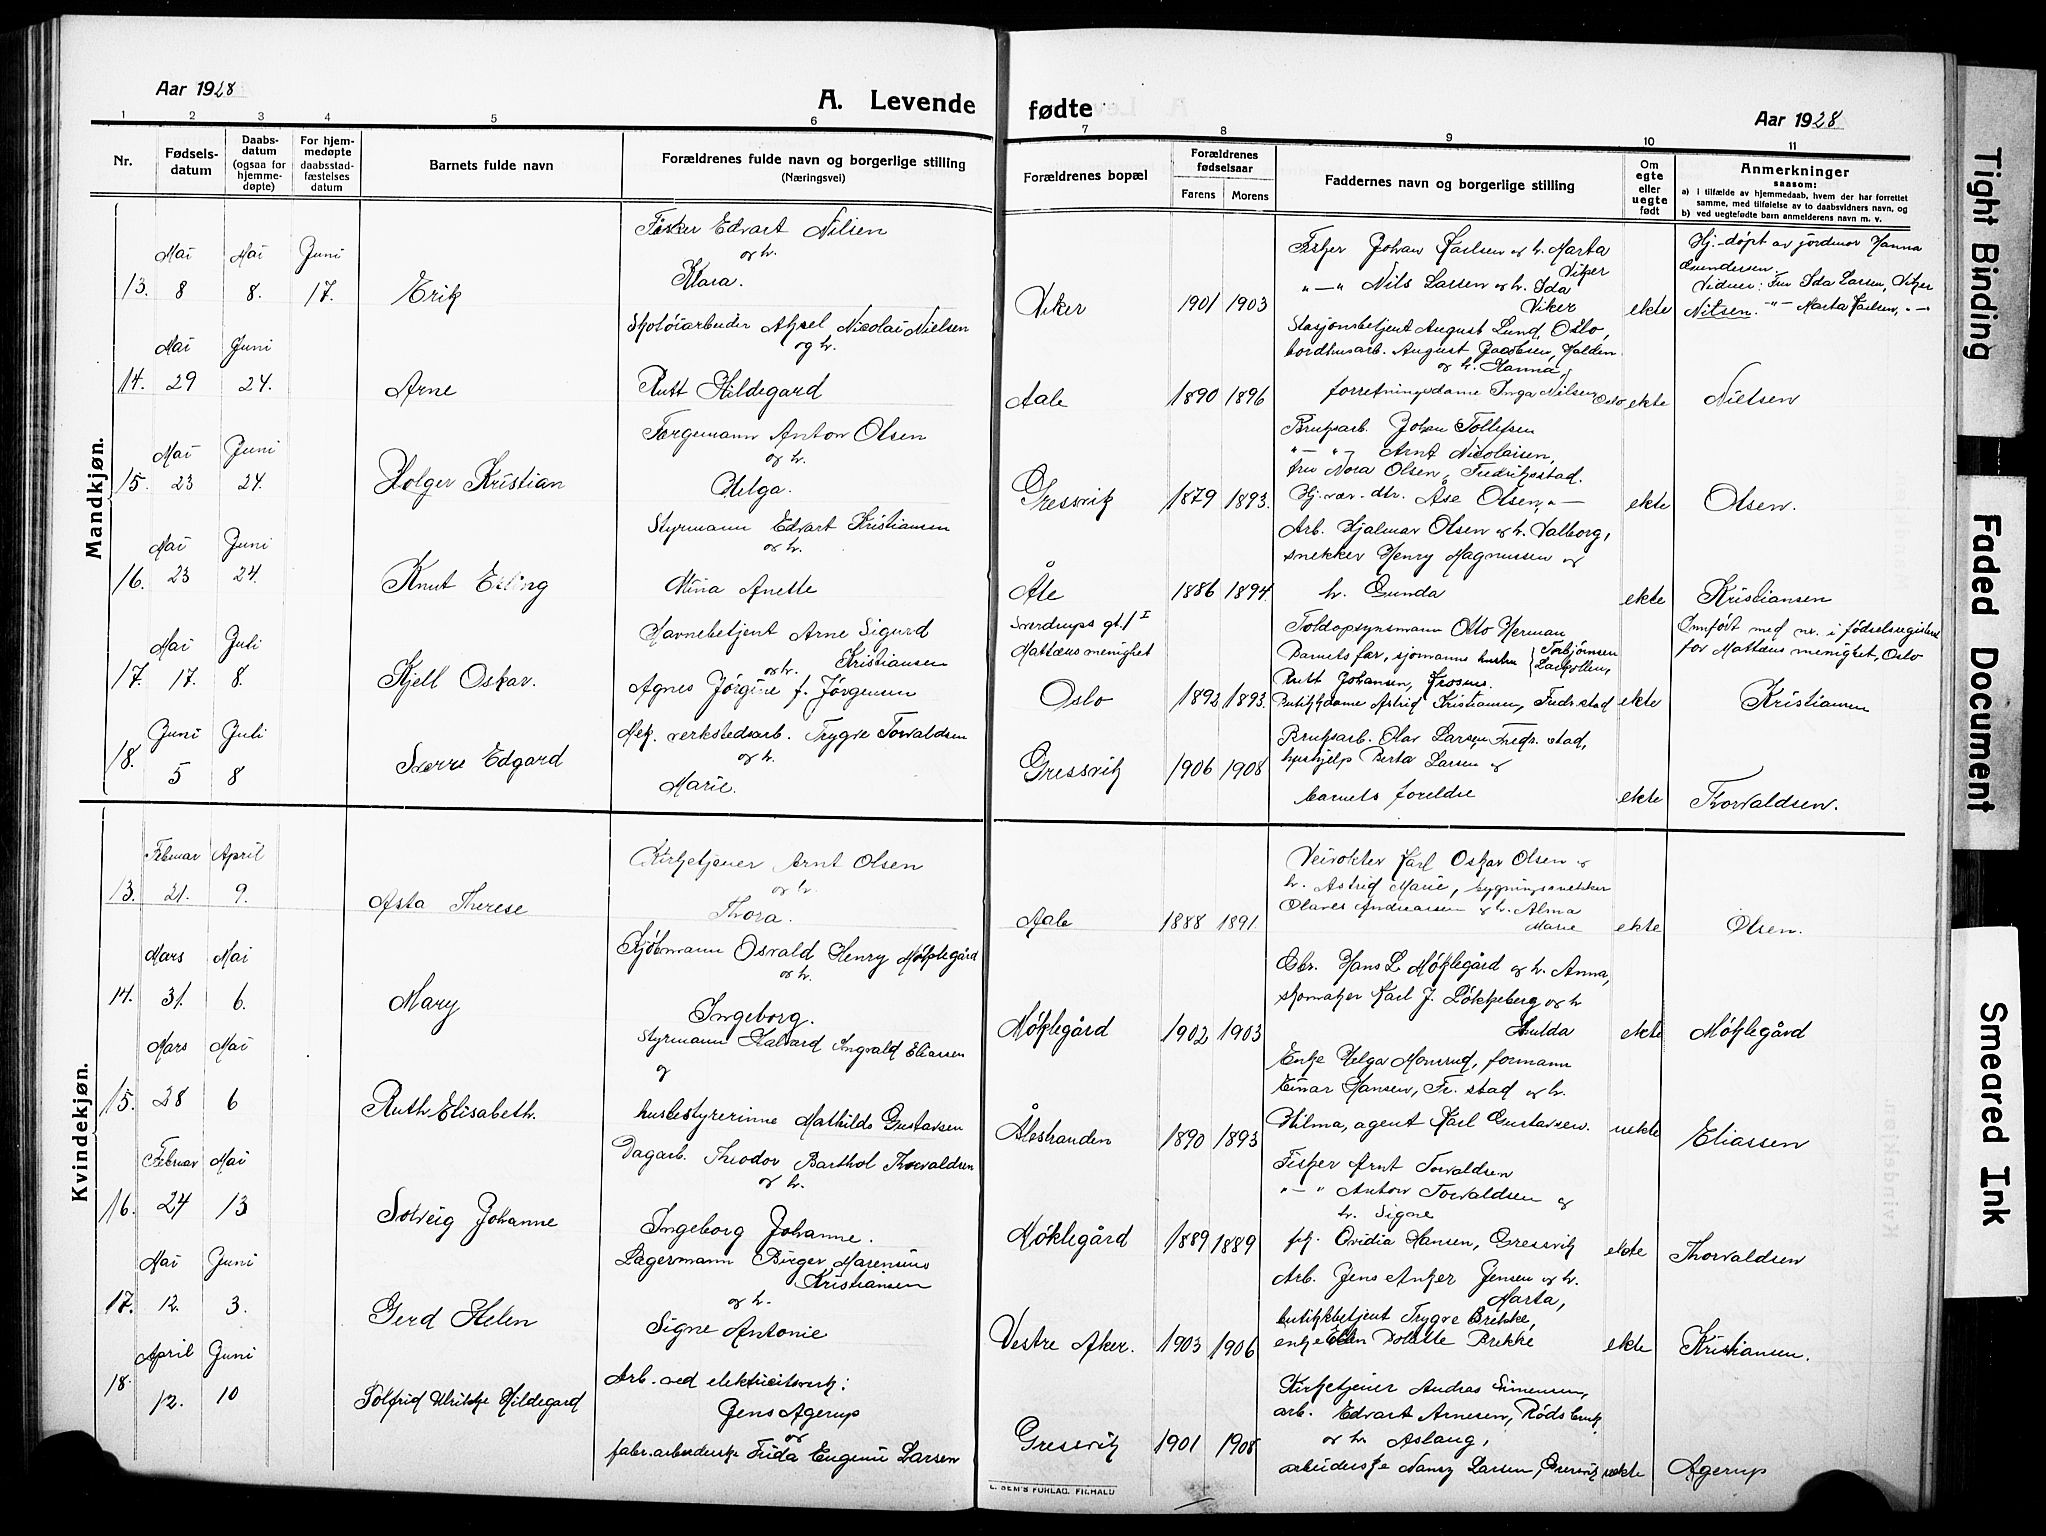 Aar 1928
A. Levende fødte
Aar 1928
1 2 3 4 5 6 7 8 9 10 11
Nr.
Fødsels-
datum
Daabs-
datum
(ogsaa for
hjemme-
døpte)
For hjem-
medøpte
daabsstad-
fæstelses
datum
Barnets fulde navn
Forældrenes fulde navn og borgerlige stilling
(Næringsvei)
Forældrenes bopæl
Forældrenes
fødselsaar
Farens Morens
Faddernes navn og borgerlige stilling
Om
egte
eller
uegte
født
Anmerkninger
saasom:
a) i tilfælde av hjemmedaab, hvem der har forrettet
samme, med tilføielse av to daabsvidners navn, og
b) ved uegtefødte barn anmelderens navn m. v.
Mandkjøn.
13. Mai 8 Mai 8. Juni 17. Erik
Fisker Edvart Nilsen
og h.
Klara.
Viker 1901 1903
Fisker Johan Karlsen og h. Marta
Viker
"—" Nils Larsen og h. Ida
Viker
ekte
Hj.-døpt av jordmor Hanna
Gundersen.
Vidner: Fru Ida Larsen, Viker
Nilsen. "— Marta Karlsen, -"-
14. Mai 29 Juni 24. Arne
Skotøiarbeider Aksel Nicolai Nielsen
og h.
Rutt Hildegard
Aale 1890 1896
Stasjonsbetjent August Lund, Oslo,
bordhusarb. August Jacobsen, Halden
og h. Hanna,
forretningsdame Inga Nilsen Oslo
ekte
Nielsen
15. Mai 23 Juni 24. Holger Kristian
Færgemann Anton Olsen
og h.
Helga.
Gressvik 1879 1893.
Bruksarb. Johan Tollefsen
"—"— Arnt Nicolaisen,
fru Nora Olsen, Fredrikstad.
Hj. vær. dtr. Åse Olsen, "—
ekte
Olsen.
16. Mai 23 Juni 24. Knut Erling
Styrmann Edvart Kristiansen
og h.
Mina Anette
Åle 1886 1894
Arb. Hjalmar Olsen og h. Valborg,
snekker Henry Magnussen og
h. Gunda
ekte
Kristiansen
17. Mai 17. Juli 8. Kjell Oskar.
Havnebetjent Arne Sigurd
og h. Kristiansen
Agnes Jørgine f. Jørgensen
Sverdrups gt. 1 I
Mattæus menighet
Oslo 1892 1893.
Toldopsynsmann Otto Herman
Barnets far, sjømanns hustru Torbjørnsen
Lackollen,
Rutt Johansen,
Butikkdame Astrid Kristiansen, Fredr.stad
ekte
Omført med nr. i fødselsregisteret
for Mattæus menighet, Oslo
Kristiansen
18. Juni 5 Juli 8 Sverre Edgard
Mek. verkstedsarb. Trygve Torvaldsen
og h.
Marie.
Gressvik 1906 1908
Bruksarb. Olav Larsen, Fredr. stad,
hushjelp Berta Larsen og
barnets foreldre
ekte
Thorvaldsen.
Kvindekjøn.
13. Februar 21. April 9. Asta Therese
Kirketjener Arnt Olsen
og h.
Thora.
Aale 1888 1891.
Veivokter Karl Oskar Olsen og
h. Astrid Marie, bygningssnekker
Olaves Andreassen og h. Alma
Marie
ekte
Olsen.
14. Mars 31. Mai 6. Mary
Kjøbmann Osvald Henry Møklegård
og h.
Ingeborg.
Møklegård 1902 1903
Gbr. Hans L. Møklegård og h. Anna,
skomaker Karl J. Løkkeberg og h.
Hulda
ekte
Møklegård
15. Mars 28 Mai 6 Ruth Elisabeth.
Styrmann Halvard Ingvald Eliassen
og
husbestyrerinne Mathilde Gustavsen
Ålestranden 1890 1893
Enke Helga Monsrud, formann
Einar Hansen, Fr. stad og h.
Hilma, agent Karl Gustavsen.
uekte
Eliassen
16. Februar 24 Mai 13 Solveig Johanne
Dagarb. Theodor Barthol Thorvaldsen
og h.
Ingeborg Johanne.
Møklegård 1889 1889
Fisker Arnt Torvaldsen
"—" Anton Torvaldsen og
h. Signe
frk. Ovidia Hansen, Gressvik
ekte
Thorvaldsen
17. Mai 12. Juni 3. Gerd Helen
Lagermann Birger Marensius
Kristiansen
og h.
Signe Antonie
Vestre Aker. 1903 1906
Arb. Jens Anker Jensen og h.
Marta,
butikkbetjent Trygve Brekke,
enke Ellen Brekke
ekte
Kristiansen.
18. April 12. Juni 10 Solfrid Ulrikke Hildegard
Arb. ved elektricitsverk:
Jens Agerup
og
fabr.arbeiderske Frida Eugenie Larsen
Gressvik 1901 1908
Kirketjener Andras Simensen,
arb. Edvart Arnesen, Rødsbruk,
og h. Aslaug,
arbeiderske Nancy Larsen, Gressvik
uekte
Agerup
E. SEM'S FORLAG. FR.HALD
Tight Binding
Faded Document
Smeared Ink